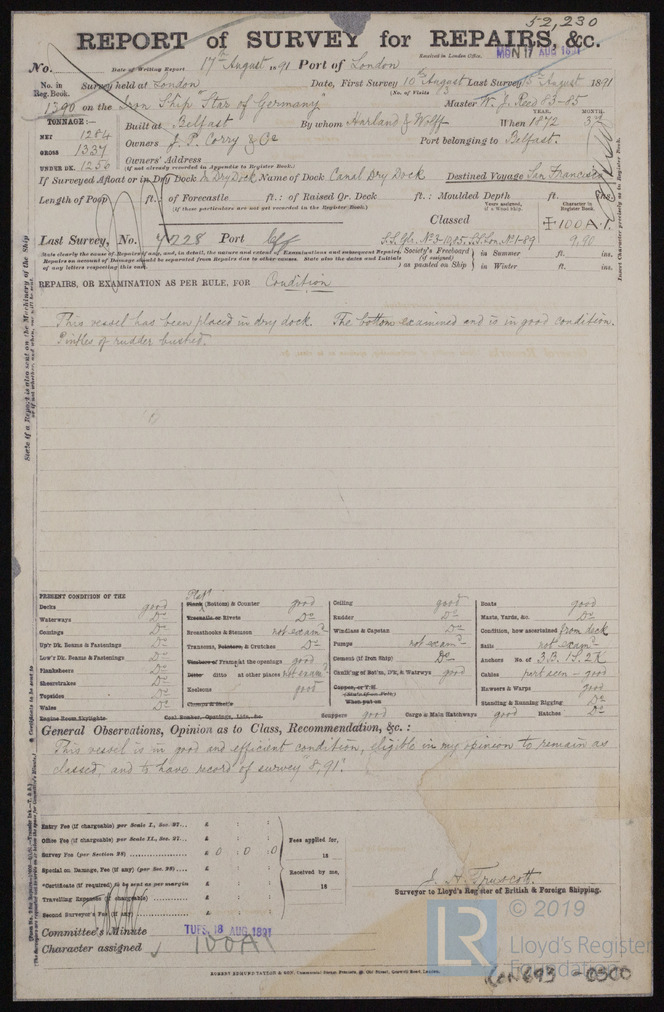 52,230
REPORT of SURVEY for REPAIRS, &c.
No. Date of Writing Report 17th August 1891 Port of London Received in London Office. MON 17 AUG 1891
No. in Reg. Book. Survey held at London Date, First Survey 10th August Last Survey 15 August 1891
(No. of Visits
1390 on the Iron Ship "Star of Germany" Master W. J. Reed 83-85
TONNAGE:— YEAR. MONTH.
NET 1284 Built at Belfast By whom Harland & Wolff When 1872 3
GROSS 1337 Owners J. P. Corry & Co Port belonging to Belfast.
UNDER DK. 1256 Owners' Address
(if not already recorded in Appendix to Register Book.)
If Surveyed Afloat or in Dry Dock In Dry Dock Name of Dock Canal Dry Dock Destined Voyage San Francisco
Length of Poop ft.: of Forecastle ft.: of Raised Qr. Deck ft.: Moulded Depth ft. ins.
(If these particulars are not yet recorded in the Register Book.) Years assigned, if a Wood ship. Character in Register Book.
Classed ✠100A.1.
Last Survey, No. 4228 Port S.S. Gls. No.3-10,85. S.S. Lon. No.1-89 9,90
State clearly the name of Repairs, if any, and, in detail, the nature and extent of Examinations and subsequent Repairs. Society's Freeboard (if assigned) in Summer ft. ins.
Repairs on account of Damage should be separated from Repairs due to other causes. State also the dates and Initials of any letters respecting this case. as painted on Ship in Winter ft. ins.
REPAIRS, OR EXAMINATION AS PER RULE, FOR Condition
This vessel has been placed in dry dock. The bottom examined and is in good condition.
Pintles of rudder bushed.
PRESENT CONDITION OF THE
Decks good
Waterways Do
Comings Do
Up'r Dk. Beams & Fastenings Do
Low'r Dk. Beams & Fastenings Do
Planksheers Do
Sheerstrakes Do
Topsides Do
Wales Do
Engine Room Skylights
Plat'g
Plank (Bottom) & Counter good
Treenails or Rivets Do
Breasthooks & Stemson not exam'd
Transoms, Pointers, & Crutches Do
Timbers or Frames at the openings good
Ditto ditto at other places not exam'd
Keelsons good
Clamps & Shelfs
Coal Bunker, Openings, Lids, &c.
Ceiling good
Rudder Do
Windlass & Capstan Do
Pumps not exam'd
Cement (if Iron Ship) Do
Caulking of Bot'm, D'k, & Watrwys good
Copper, or Y.M.
(State if on Felt)
When put on
Scuppers good Cargo & Main Hatchways good Hatches Do
Boats good
Masts, Yards, &c. Do
Condition, how ascertained from deck
Sails not exam'd
Anchors No. of 3B. 1S. 2K
Cables part seen - good
Hawsers & Warps good
Standing & Running Rigging Do
General Observations, Opinion as to Class, Recommendation, &c.:
This vessel is in good and efficient condition, eligible in my opinion to remain as
classed, and to have record of survey "8,91".
Entry Fee (if chargeable) per Scale I., Sec. 27... £ : :
Office Fee (if chargeable) per Scale II., Sec. 27... £ : : Fees applied for,
Survey Fee (per Section 28) £ 0 : 0 : 0 18
Special on Damage, Fee (if any) (per Sec. 28) £ : : Received by me,
*Certificate (if required) to be sent as per margin £ : : 18
Travelling Expenses (if chargeable) £ : :
Second Surveyor's Fee (if any) £ : :
J. H. Truscott.
Surveyor to Lloyd's Register of British & Foreign Shipping.
Committee's Minute TUES. 18 AUG 1891
Character assigned 100A1
ROBERT EDMUND TAYLOR & SON
LR
© 2019
Lloyd's Register
Foundation
LON 693 -0500